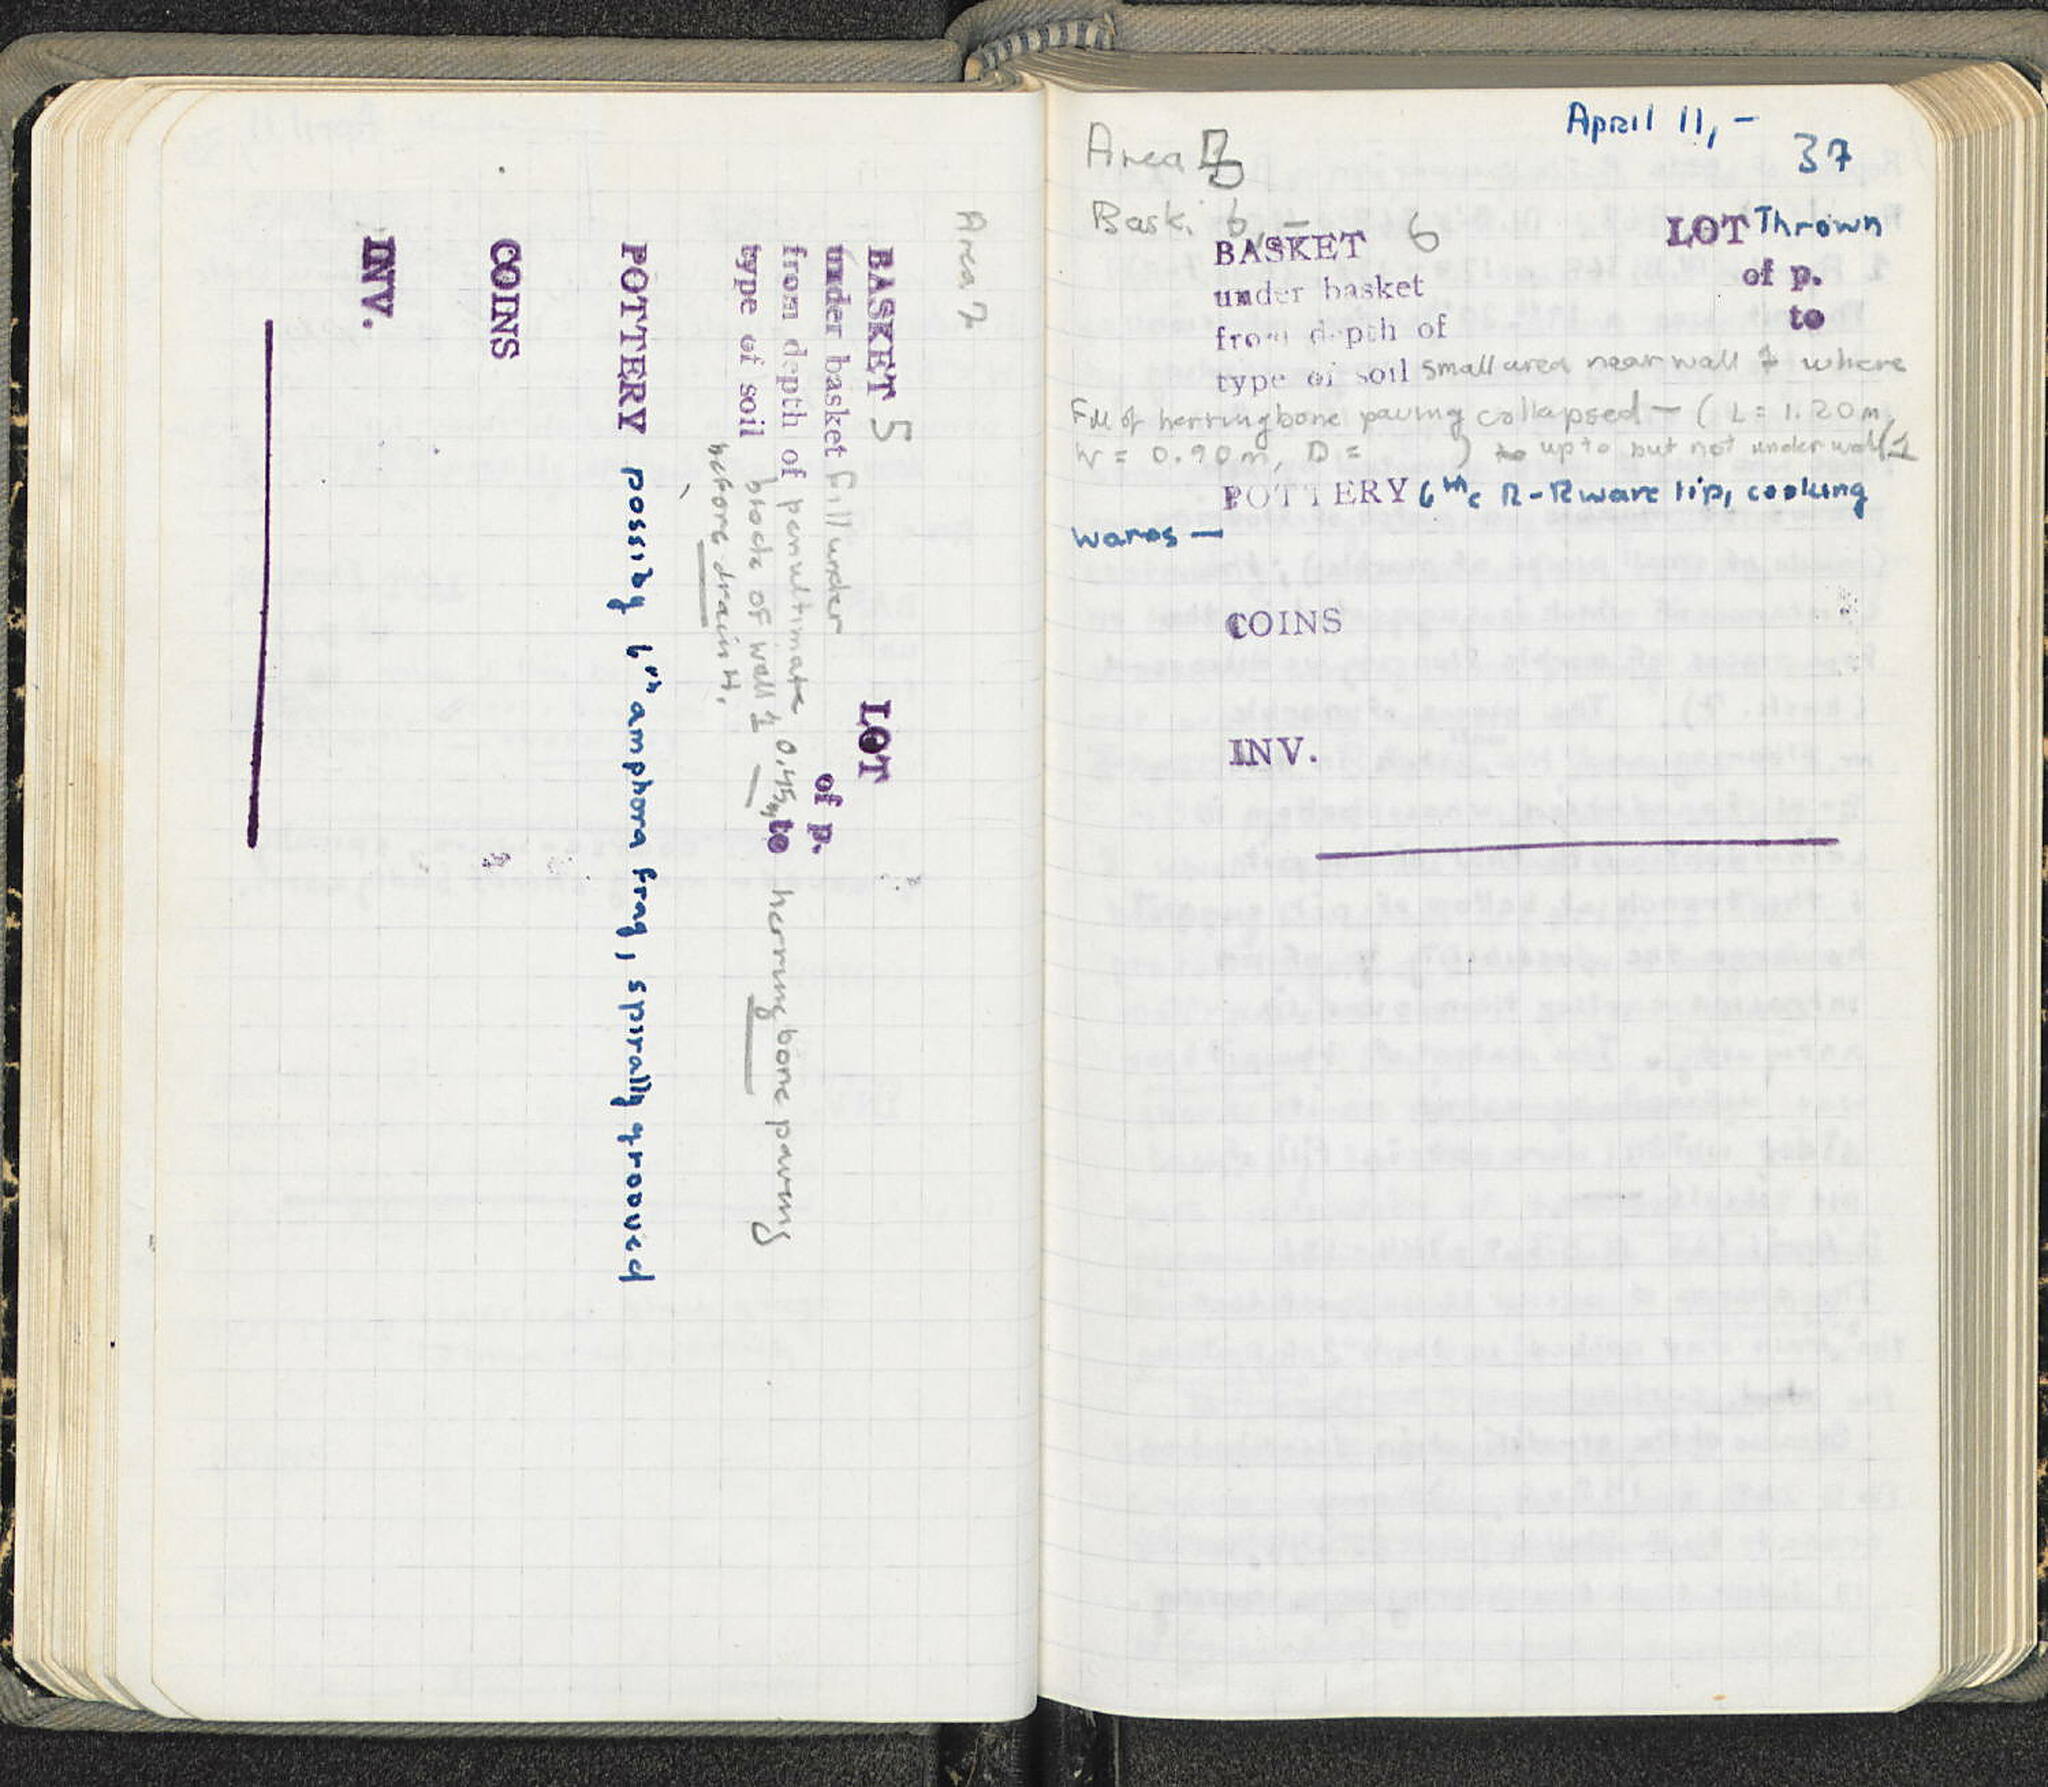 Area 7
BASKET 5
LOT
under basket fill under
of p.
from depth of penultimate 0.45m to herringbone paving
type of soil block of wall 1 —
before drain H.
POTTERY possibly 6th amphora frag, spirally grooved
COINS
INV.
April 11, –
37
Area
Bask. 6, –
BASKET 6
LOT Thrown
under basket
of p.
from depth of
to
type of soil small area near wall 1 where
Fill of herringbone paving collapsed – ( L = 1.20 m,
W = 0.90 m, D = ) up to but not under wall 1
POTTERY 6th c R-R ware lip, cooking
wares —
COINS
INV.